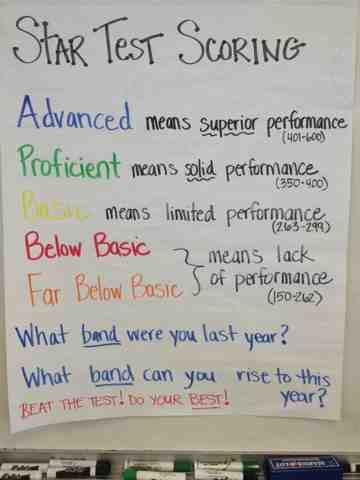 STAR TEST SCORING
Advanced means superior performance
(401-600)
Proficient means solid performance
(350-400)
Basic means limited performance
(263-299)
Below Basic
Far Below Basic
means lack
of performance
(150-262)
What band were you last year?
What band can you rise to this
year?
BEAT THE TEST! DO YOUR BEST!